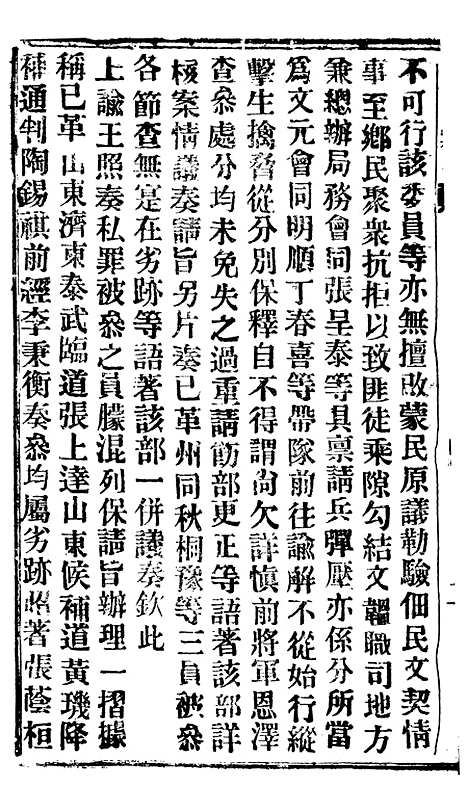 不可行該委員等亦無擅改蒙民原議勒驗佃民文契情
事至鄉民聚衆抗拒以致匪徒乘隙勾結文韞職司地方
兼總辦局務會同張呈泰等具禀請兵彈壓亦係分所當
爲文元會同明順丁春喜等帶隊前往諭解不從始行縱
擊生擒脅從分別保釋自不得謂尙欠詳愼前將軍恩澤
查叅處分均未免失之過重請飭部更正等語著該部詳
核案情議奏請旨另片奏已革州同秋桐豫等三員被叅
各節查無寔在劣跡等語著該部一併議奏欽此
上諭王照奏私罪被叅之員朦混列保請旨辦理一摺據
稱已革山東濟東泰武臨道張上達山東候補道黃璣降
補通判陶錫祺前經李秉衡奏叅均屬劣跡昭著張蔭桓